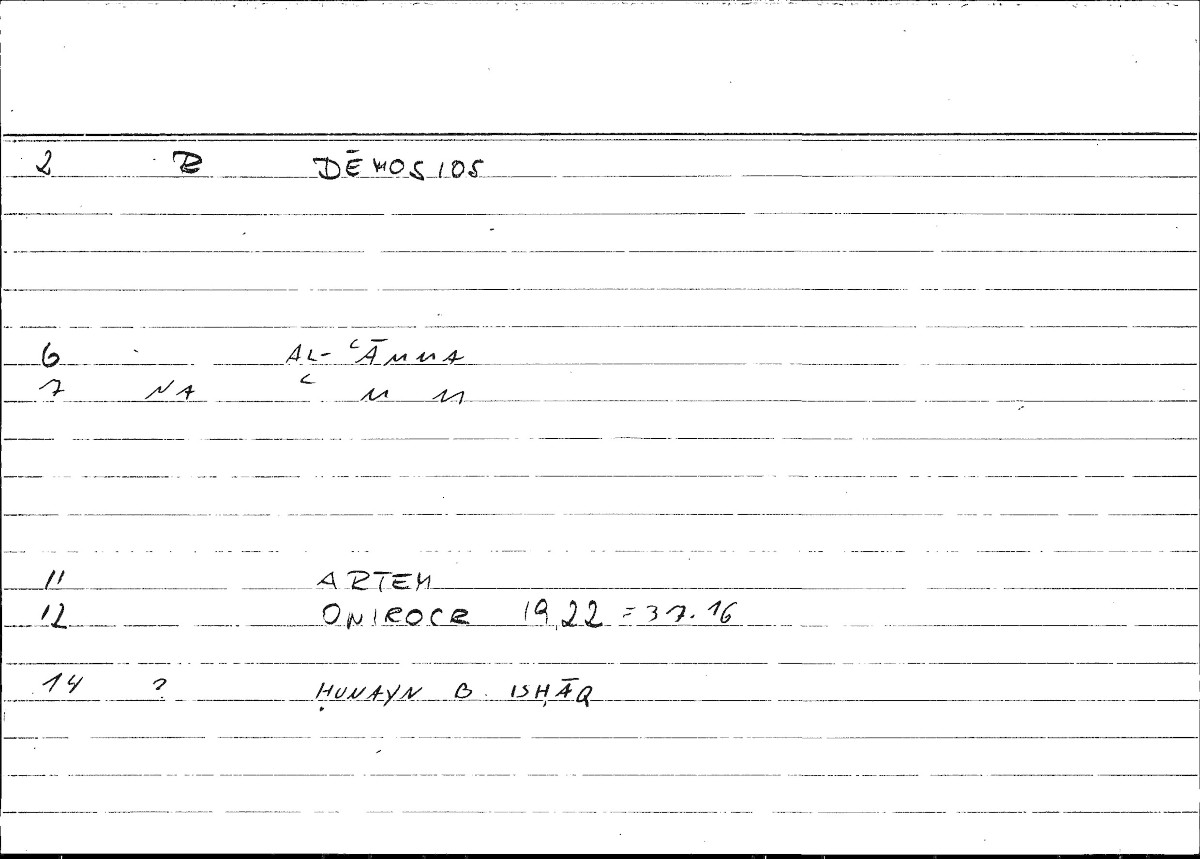 2 R DĒMOSIOS
6 AL-ʿĀMMA
7 NA ʿMM
11 ARTEM
12 ONIROCR 19,22 = 37.16
14 ? ḤUNAYN B. ISḤĀQ